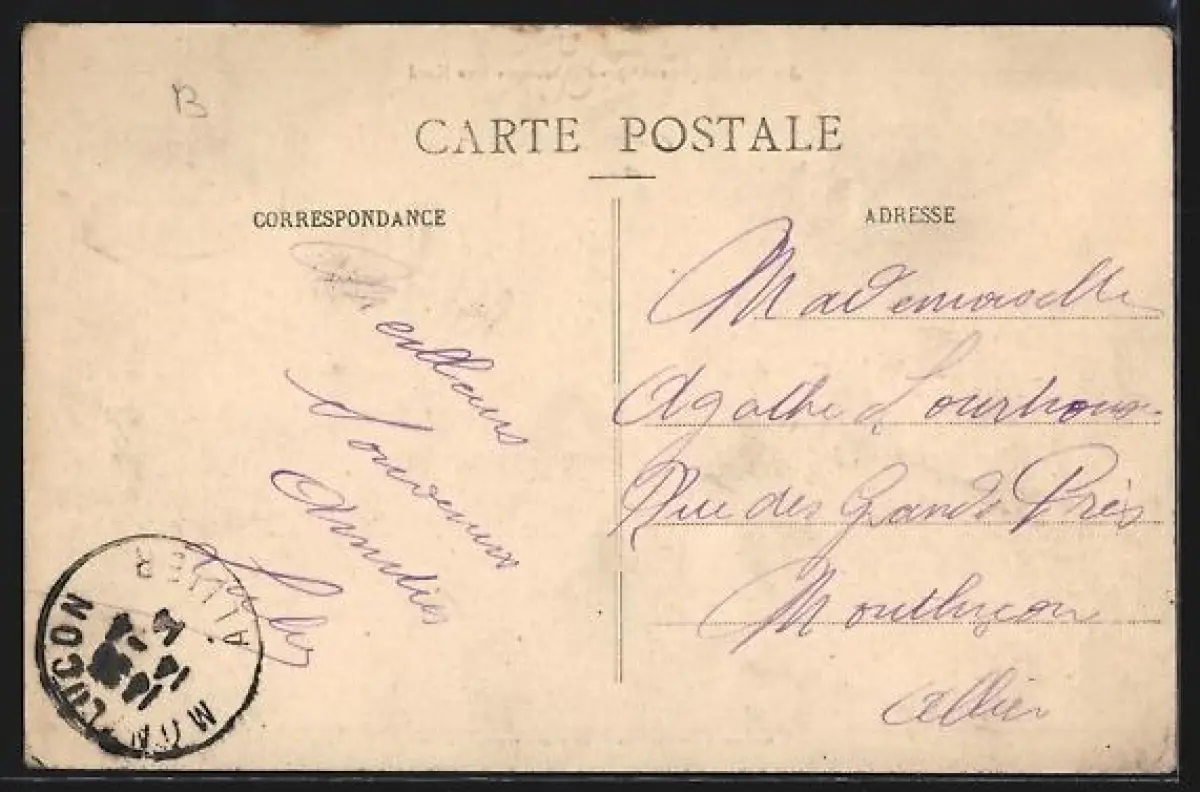 B
CARTE POSTALE
CORRESPONDANCE
Meilleurs
Souvenirs
Amitiés
ADRESSE
Mademoiselle
Agathe
Rue des Grands Près
Montluçon
Allier
MONTLUCON
ALLIER